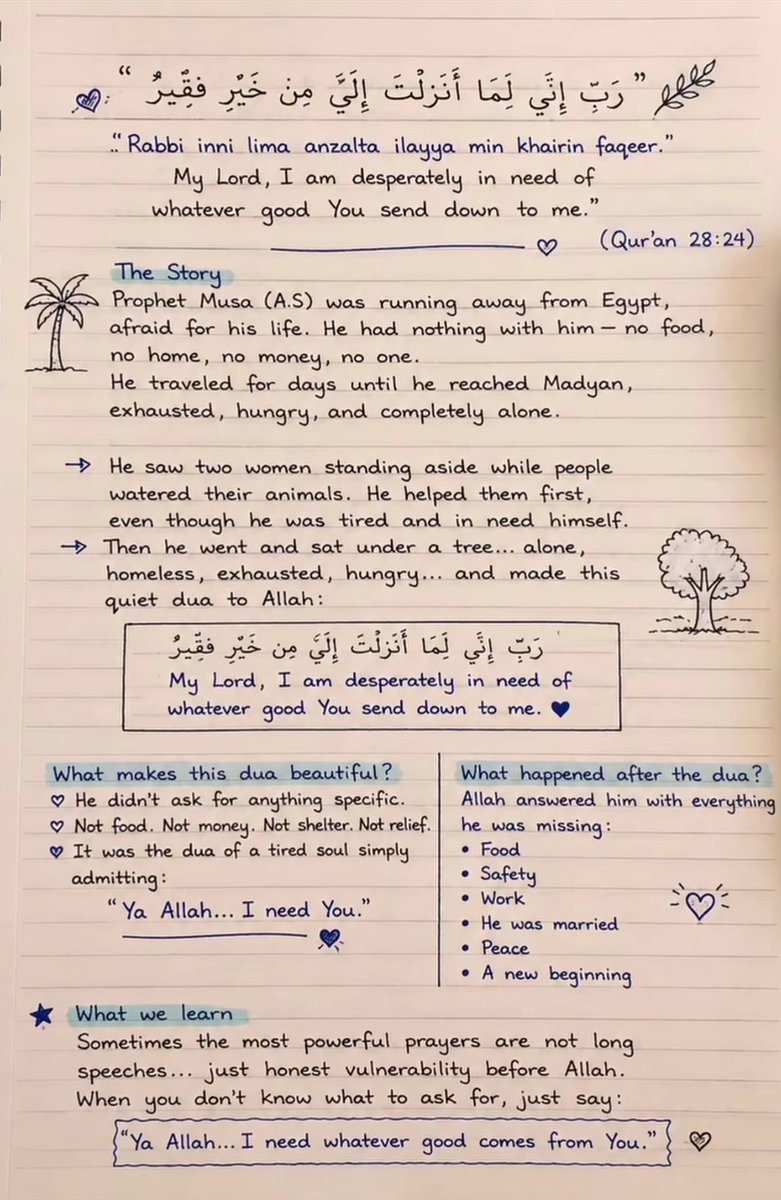 “ رَبِّ إِنَّي لِمَا أَنَزلْتَ إِلَيَّ مِنْ خَيْرِ فقِّيرُ ”
“ Rabbi inni lima anzalta ilayya min khairin faqeer.”
My Lord, I am desperately in need of
whatever good You send down to me.”
(Qur’an 28:24)
The Story
Prophet Musa (A.S) was running away from Egypt,
afraid for his life. He had nothing with him — no food,
no home, no money, no one.
He traveled for days until he reached Madyan,
exhausted, hungry, and completely alone.
→ He saw two women standing aside while people
watered their animals. He helped them first,
even though he was tired and in need himself.
→ Then he went and sat under a tree... alone,
homeless, exhausted, hungry... and made this
quiet dua to Allah:
رَبِّ إِنَّي لِمَا أَنَزلْتَ إِلَيَّ مِن خَيْرِ فقِّيرُ
My Lord, I am desperately in need of
whatever good You send down to me.
What makes this dua beautiful?
He didn’t ask for anything specific.
Not food. Not money. Not shelter. Not relief.
It was the dua of a tired soul simply
admitting:
“ Ya Allah... I need You.”
What happened after the dua?
Allah answered him with everything
he was missing:
• Food
• Safety
• Work
• He was married
• Peace
• A new beginning
What we learn
Sometimes the most powerful prayers are not long
speeches... just honest vulnerability before Allah.
When you don’t know what to ask for, just say:
“Ya Allah... I need whatever good comes from You.”